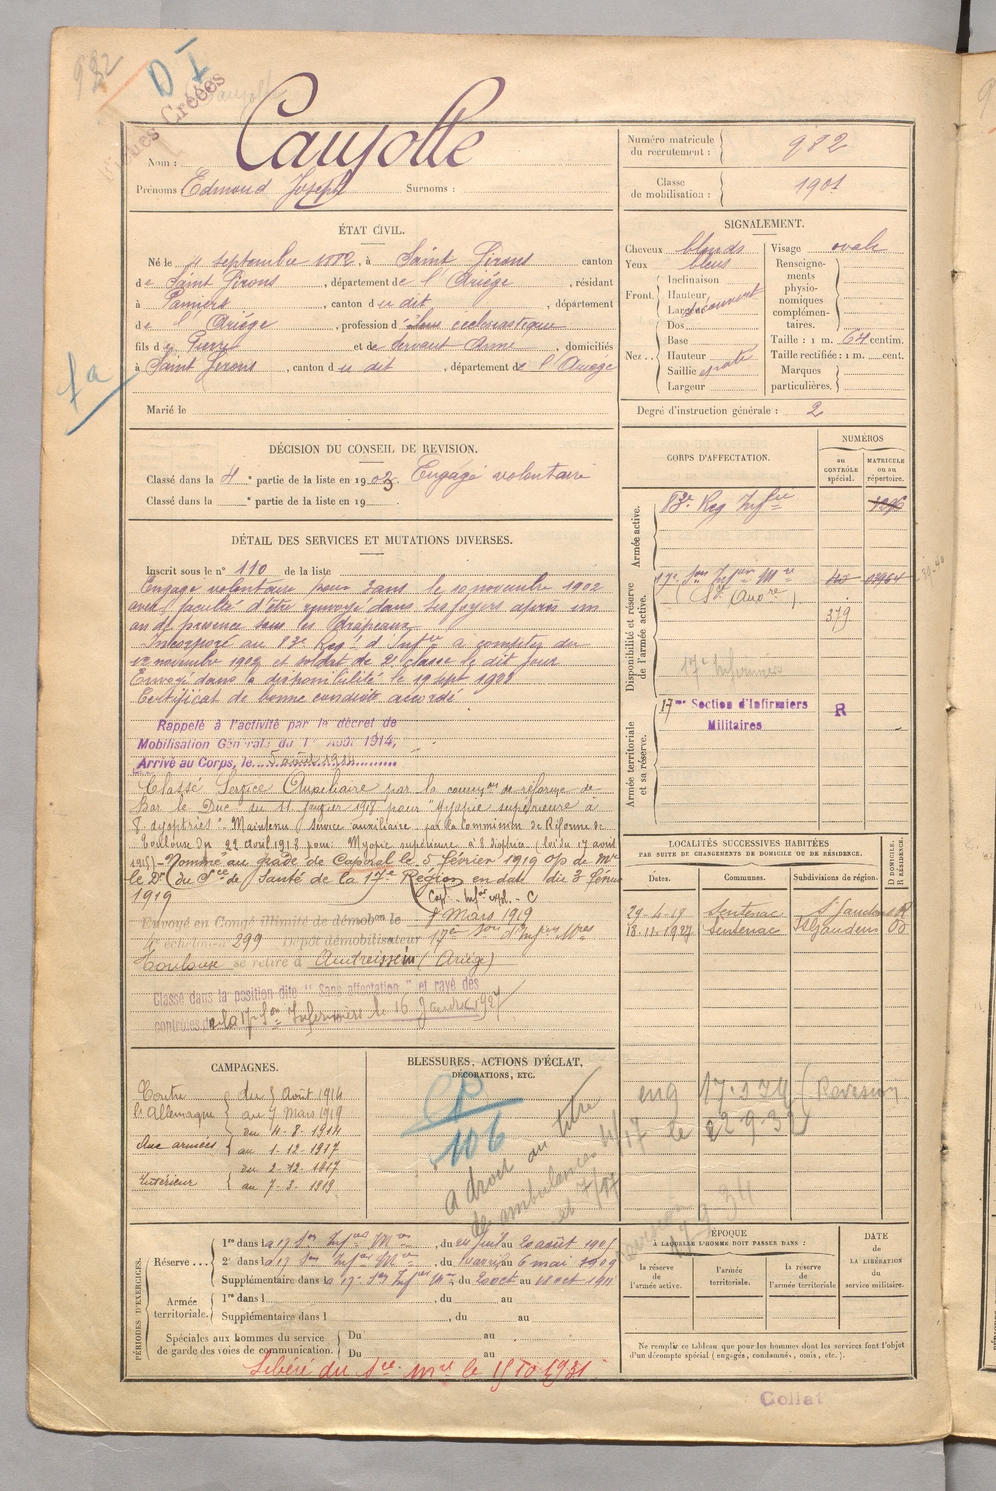 982
D I
Fiches Créées
Nom : Caujolle
Prénoms Edmond Joseph Surnoms :
Numéro matricule du recrutement : 982
Classe de mobilisation : 1901
ÉTAT CIVIL.
Né le septembre 1882, à Saint Girons canton
de Saint Girons, département de l'Ariège, résidant
à Pamiers, canton du dit, département
de l'Ariège, profession d'élève ecclésiastique
fils de Pierre et de Servant Anne, domiciliés
à Saint Girons, canton du dit, département de l'Ariège
Marié le
SIGNALEMENT.
Cheveux blonds
Yeux bleus
Front.
Inclinaison
Hauteur
Largeur découvert
Nez..
Dos
Base
Hauteur
Saillie épaté
Largeur
Visage ovale
Renseignements physionomiques complémentaires.
Taille : 1 m. 64 centim.
Taille rectifiée : 1 m. cent.
Marques particulières.
Degré d'instruction générale : 2
DÉCISION DU CONSEIL DE REVISION.
Classé dans la 4e partie de la liste en 1903. Engagé volontaire
Classé dans la e partie de la liste en 19
DÉTAIL DES SERVICES ET MUTATIONS DIVERSES.
Inscrit sous le n° 110 de la liste
Engagé volontaire pour 3 ans le 10 novembre 1902
avec faculté d'être renvoyé dans ses foyers après un
an de présence sous les drapeaux
Incorporé au 83e Regt d'Infrie à compter du
12 novembre 1902 et soldat de 2e classe le dit jour
Envoyé dans la disponibilité le 19 sept 1903
Certificat de bonne conduite accordé
Rappelé à l'activité par le décret de
Mobilisation Générale du 1er Août 1914,
Arrivé au Corps, le 5 août 1914
Classé Service Auxiliaire par la common de réforme de
Bar le Duc du 11 janvier 1918 pour "Myopie supérieure à
8 dioptries". Maintenu service auxiliaire par la Commission de Réforme de
Toulouse du 22 avril 1918 pour Myopie supérieure à 8 dioptries (loi du 17 août
1915). Nommé au grade de Caporal le 5 février 1919 o/s de Mr
le Dr du Sce de Santé de la 17e Région en date du 3 février
1919
Envoyé en Congé illimité de démobon le 7 Mars 1919
4e échelon n° 299 Dépôt démobilisateur 17e Son d'Infers Mres
Toulouse se retire à Audressein (Ariège)
Classé dans la position dite "Sans affectation" et rayé des
contrôles de la 17e Son Infirmiers le 16 Janvier 1927
CORPS D'AFFECTATION.
NUMÉROS
au CONTRÔLE spécial.
MATRICULE ou au répertoire.
Armée active.
83e Reg Infrie 1296
Disponibilité et réserve de l'armée active.
17e Son Infers Mre 02964
379
17e Infirmiers
Armée territoriale et sa réserve.
17me Section d'Infirmiers R
Militaires
LOCALITÉS SUCCESSIVES HABITÉES
PAR SUITE DE CHANGEMENTS DE DOMICILE OU DE RÉSIDENCE.
Dates. Communes. Subdivisions de région. D DOMICILE. R RÉSIDENCE.
29-4-19 Sentenac St Gaudens R
18.11.1927 Sentenac St Gaudens
CAMPAGNES.
Contre l'Allemagne du 5 Août 1914
au 7 Mars 1919
Aux armées du 4-8-1914
au 1-12-1917
Intérieur du 2-12-1917
au 7-3-1919
BLESSURES, ACTIONS D'ÉCLAT,
DÉCORATIONS, ETC.
CP
106
a droit au titre
de ambulances 4/17
et 7/17
(Revision
PÉRIODES D'EXERCICES.
Réserve...
1re dans la 17 Son Infres Mres, du 24 Juil au 20 août 1905
2e dans la 17 Son Infres Mre, du au 6 mai 1909
Supplémentaire dans la 17e Son Infres Mre du 2 oct au 18 oct 1911
Armée territoriale.
1re dans l , du au
Supplémentaire dans l , du au
Spéciales aux hommes du service de garde des voies de communication.
Du au
Du au
ÉPOQUE
À LAQUELLE L'HOMME DOIT PASSER DANS :
la réserve de l'armée active.
l'armée territoriale.
la réserve de l'armée territoriale
DATE de LA LIBÉRATION du service militaire.
Ne remplir ce tableau que pour les hommes dont les services font l'objet
d'un décompte spécial (engagés, condamnés, omis, etc.).
Libéré du Sce Mre le 15 10 1931
Collat